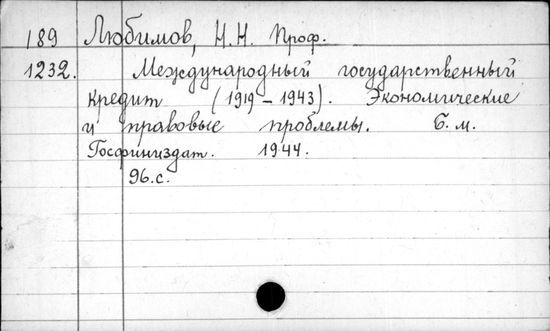 189 Любимов, Н.Н. Проф.
1232. Международный государственный
кредит (1919 – 1943). Экономические
и правовые проблемы. Б. м.
Госфиниздат. 1944.
96.с.